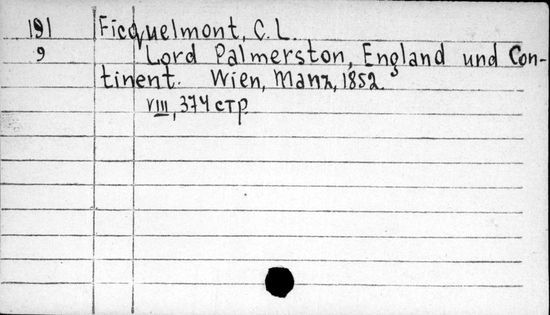 191 Ficquelmont, C. L.
9 Lord Palmerston, England und Con-
tinent. Wien, Manz, 1852.
VIII, 374 стр.